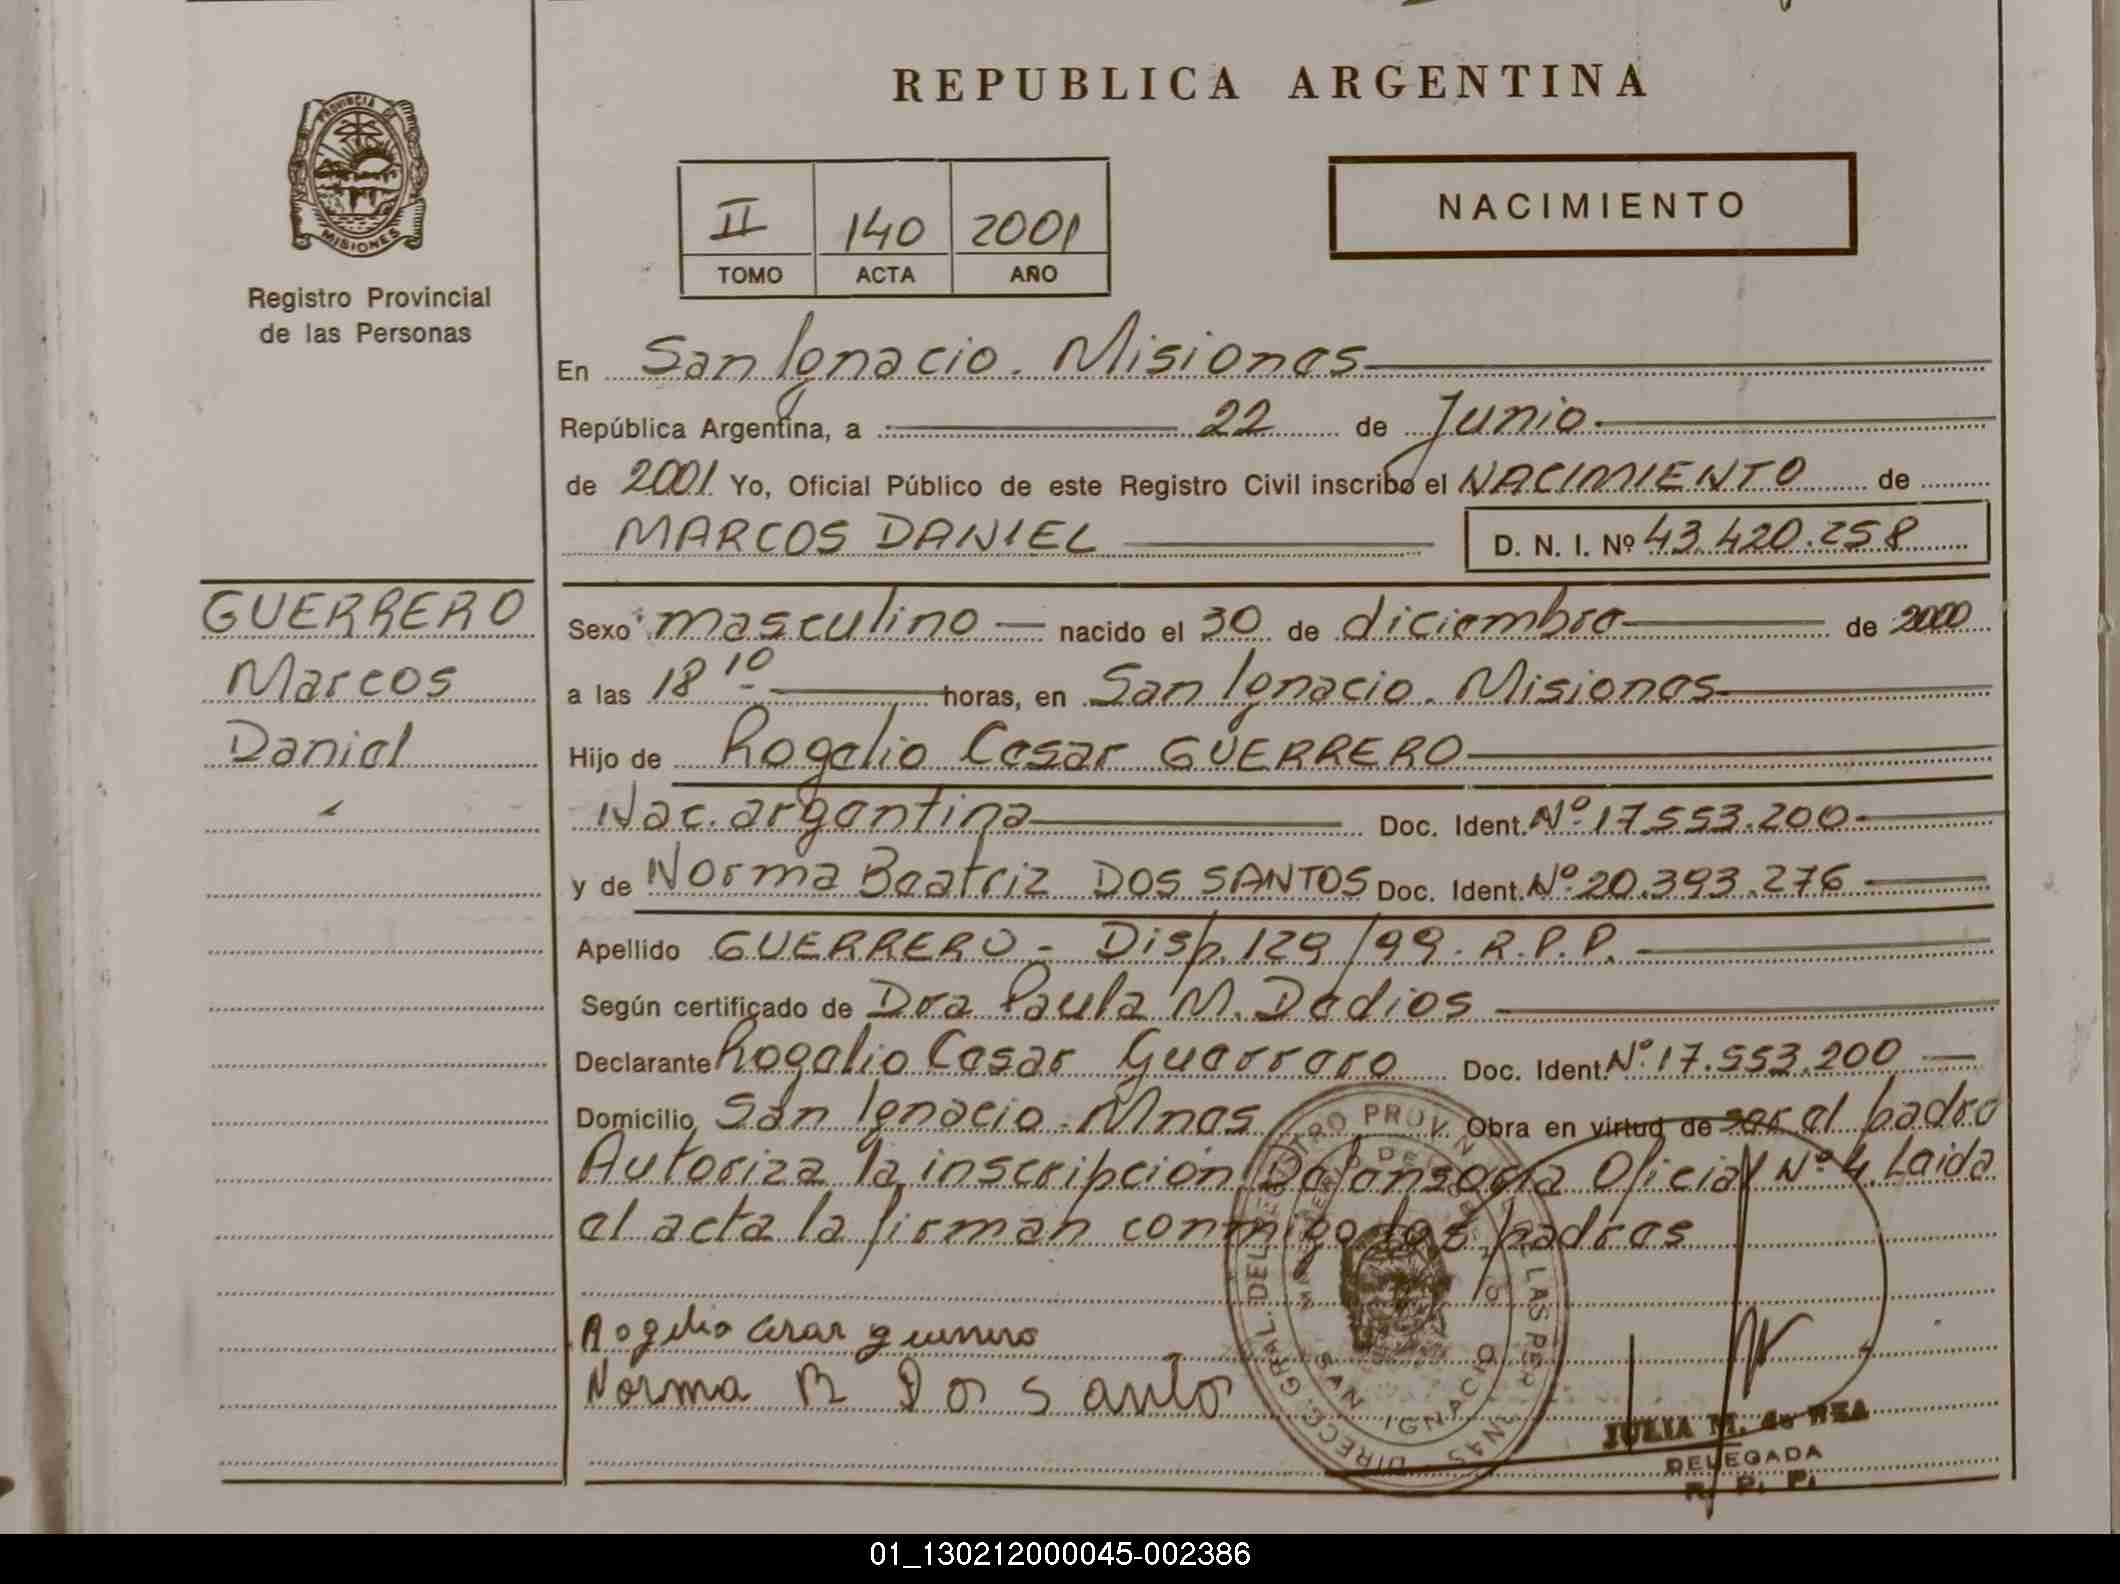 REPUBLICA ARGENTINA
PROVINCIA DE
MISIONES
Registro Provincial
de las Personas
II 140 2001
TOMO ACTA AÑO
NACIMIENTO
En San Ignacio. Misiones
República Argentina, a 22 de Junio
de 2001 Yo, Oficial Público de este Registro Civil inscribo el NACIMIENTO de
MARCOS DANIEL D. N. I. Nº 43.420.258
GUERRERO
Marcos
Daniel
Sexo masculino nacido el 30 de diciembre de 2000
a las 18 10 horas, en San Ignacio. Misiones
Hijo de Rogelio Cesar GUERRERO
Nac. argentina Doc. Ident. Nº 17.553.200
y de Norma Beatriz DOS SANTOS Doc. Ident. Nº 20.393.276
Apellido GUERRERO - Disp. 129/99. R.P.P.
Según certificado de Dra Paula M. Dedios
Declarante Rogelio Cesar Guerrero Doc. Ident. Nº 17.553.200
Domicilio San Ignacio - Mnes Obra en virtud de ser el padre
Autoriza la inscripción Defensoria Oficial Nº 4. Leida
el acta la firman conmigo los padres
Rogelio Cesar guerrero
Norma B Dos Santos
DIRECC. GRAL. DEL REGISTRO PROVIN. DE LAS PERSONAS
SAN IGNACIO
JULIA M. de REA
DELEGADA
R. P. P.
01_130212000045-002386